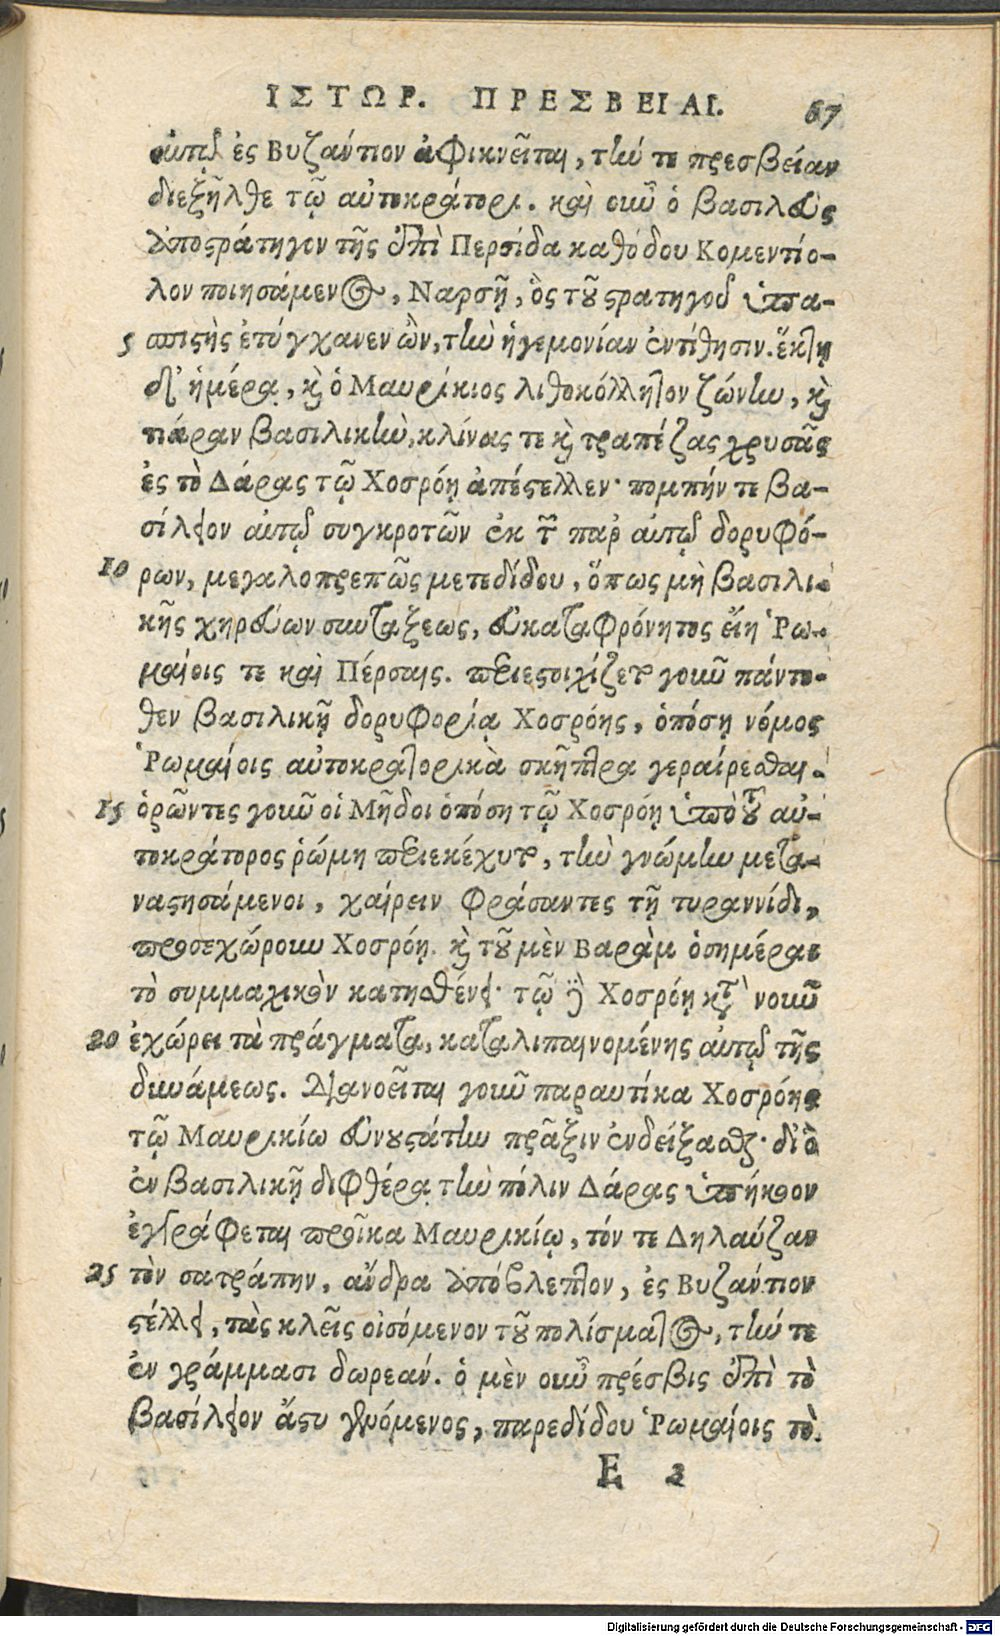 ΙΣΤΩΡ. ΠΡΕΣΒΕΙΑΙ. 67
αὐτοῦ ἐς Βυζάντιον ἀφικνεῖται, τήν τε πρεσβείαν
διεξῆλθε τῷ αὐτοκράτορι. καὶ οὖν ὁ βασιλεὺς
ὑποστράτηγον τῆς ἐπὶ Περσίδα καθόδου Κομεντίο-
λον ποιησάμενος, Ναρσῇ, ὃς τοῦ στρατηγοῦ ὑπα-
5 σπιστὴς ἐτύγχανεν ὢν, τὴν ἡγεμονίαν ἐντίθησιν. ἕκτῃ
δὲ ἡμέρᾳ, καὶ ὁ Μαυρίκιος λιθοκόλλητον ζώνην, καὶ
τιάραν βασιλικὴν, κλίνας τε καὶ τραπέζας χρυσᾶς
ἐς τὸ Δάρας τῷ Χοσρόῃ ἀπέστελλεν· πομπήν τε βα-
σίλειον αὐτοῦ συγκροτῶν ἐκ τῶν παρ' αὐτοῦ δορυφό-
10 ρων, μεγαλοπρεπῶς μετεδίδου, ὅπως μὴ βασιλι-
κῆς χηρεύων συντάξεως, εὐκαταφρόνητος εἴη Ῥω-
μαίοις τε καὶ Πέρσαις. περιεστοιχίζετο γοῦν πάντο-
θεν βασιλικῇ δορυφορίᾳ Χοσρόης, ὁπόσῃ νόμος
Ῥωμαίοις αὐτοκρατορικὰ σκῆπτρα γεραίρεσθαι.
15 ὁρῶντες γοῦν οἱ Μῆδοι ὁπόση τῷ Χοσρόῃ ὑπὸ τοῦ αὐ-
τοκράτορος ῥώμη περιεκέχυτο, τὴν γνώμην μετα-
ναστησάμενοι, χαίρειν φράσαντες τῇ τυραννίδι,
προσεχώρουν Χοσρόῃ. καὶ τοῦ μὲν Βαρὰμ ὁσημέραι
τὸ συμμαχικὸν κατησθένει· τῷ δὲ Χοσρόῃ κατὰ νοῦν
20 ἐχώρει τὰ πράγματα, καταλιπαινομένης αὐτοῦ τῆς
δυνάμεως. Διανοεῖται γοῦν παραυτίκα Χοσρόης
τῷ Μαυρικίῳ εὐνουστάτην πρᾶξιν ἐνδείξασθαι· διὸ
ἐν βασιλικῇ διφθέρᾳ τὴν πόλιν Δάρας ὑπήκοον
ἐγγράφεται προῖκα Μαυρικίῳ, τόν τε Δηλαύζαν
25 τὸν σατράπην, ἄνδρα ἀπόβλεπτον, ἐς Βυζάντιον
στέλλει, τὰς κλεῖς οἰσόμενον τοῦ πολίσματος, τήν τε
ἐν γράμμασι δωρεάν. ὁ μὲν οὖν πρέσβις ἐπὶ τὸ
βασίλειον ἄστυ γενόμενος, παρεδίδου Ῥωμαίοις τὸ.
E 2
Digitalisierung gefördert durch die Deutsche Forschungsgemeinschaft - DFG